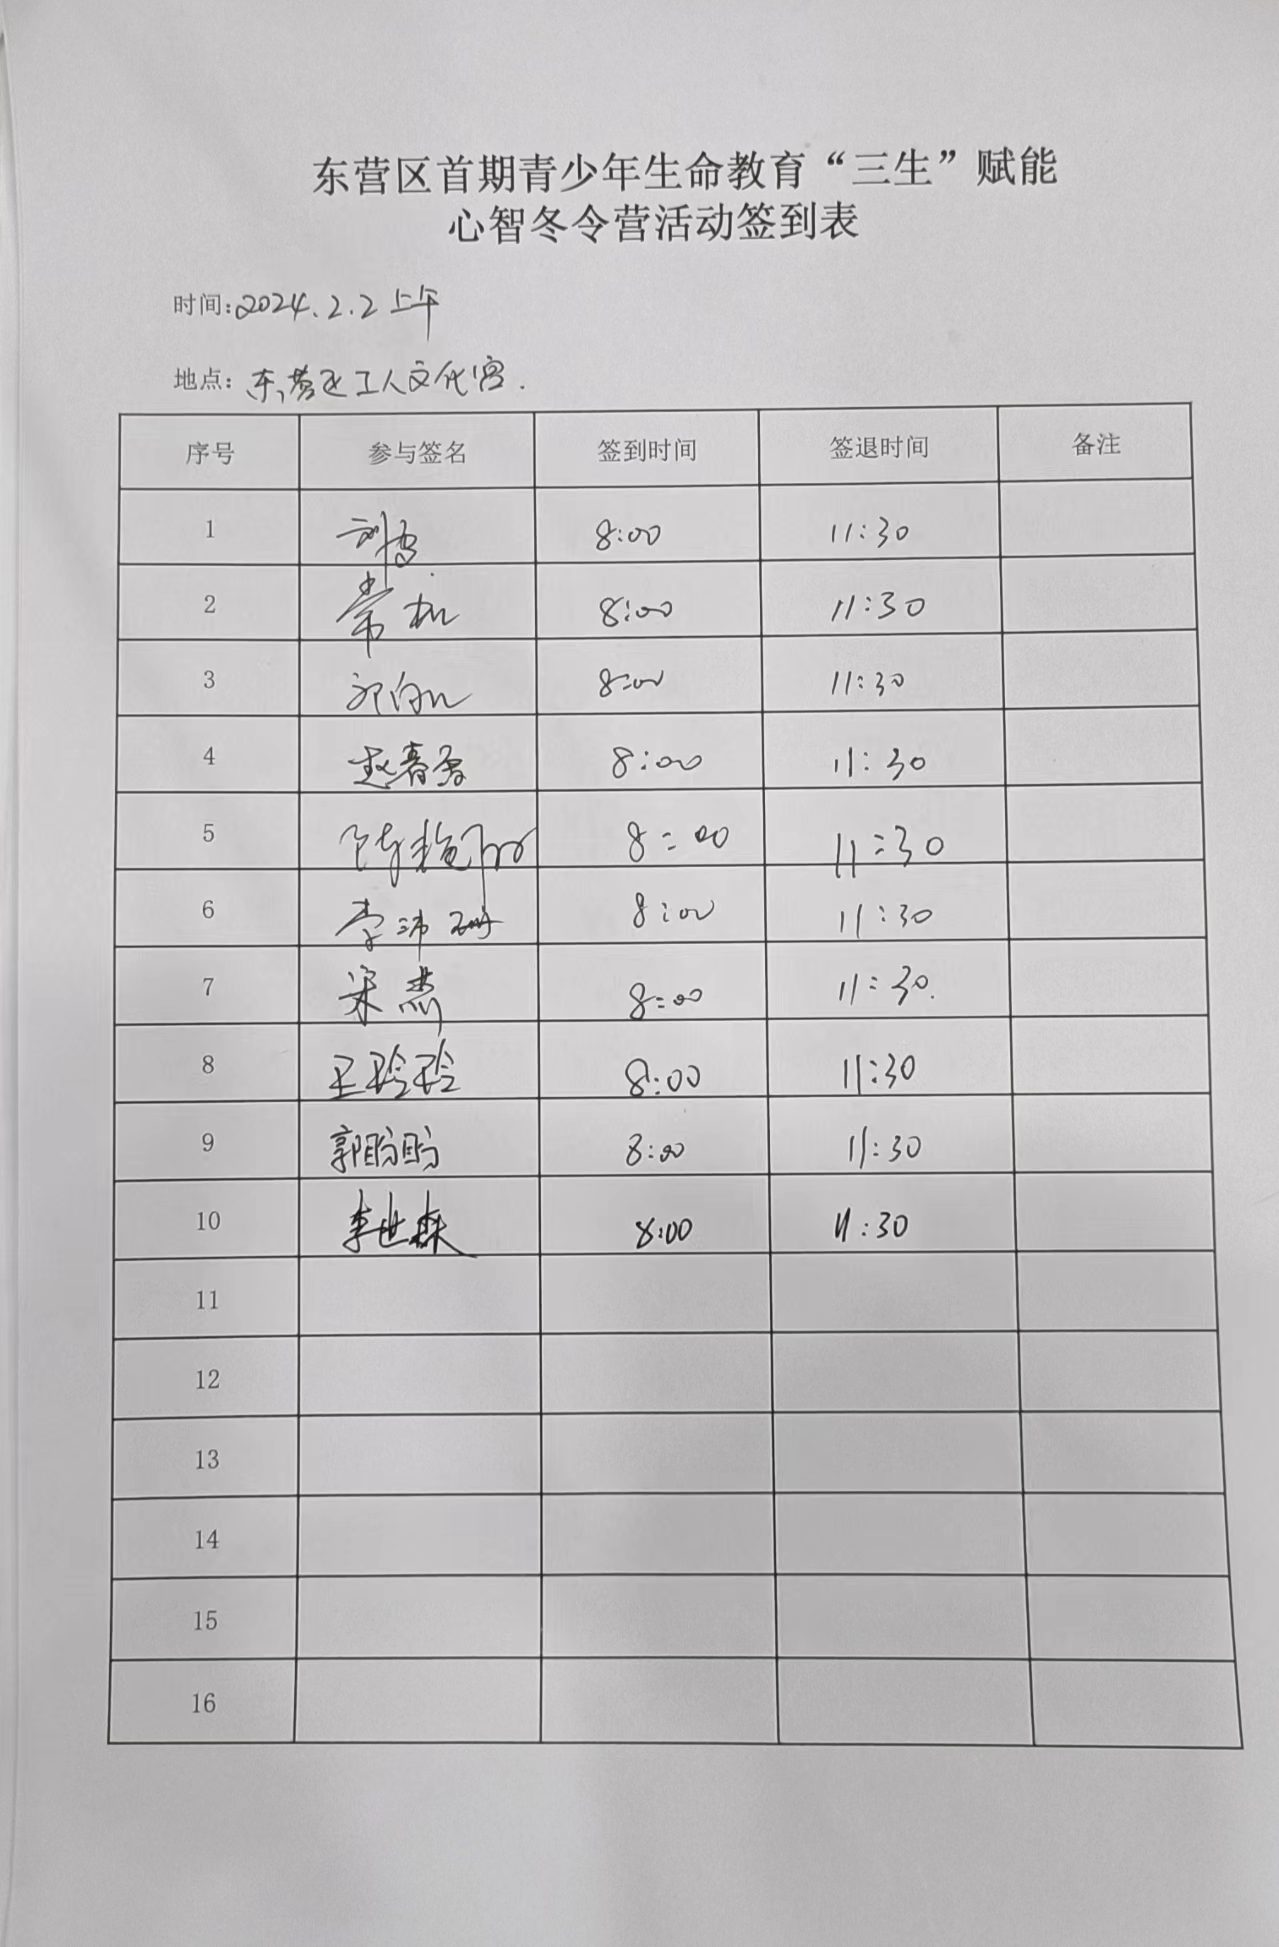 东营区首期青少年生命教育“三生”赋能
心智冬令营活动签到表
时间:2024.2.2上午
地点:东营区工人文化宫.
序号 参与签名 签到时间 签退时间 备注
1 8:00 11:30
2 常 8:00 11:30
3 8:00 11:30
4 赵春雷 8:00 11:30
5 8:00 11:30
6 李沛珊 8:00 11:30
7 宋燕 8:00 11:30.
8 王玲玲 8:00 11:30
9 郭盼盼 8:00 11:30
10 李世森 8:00 11:30
11
12
13
14
15
16